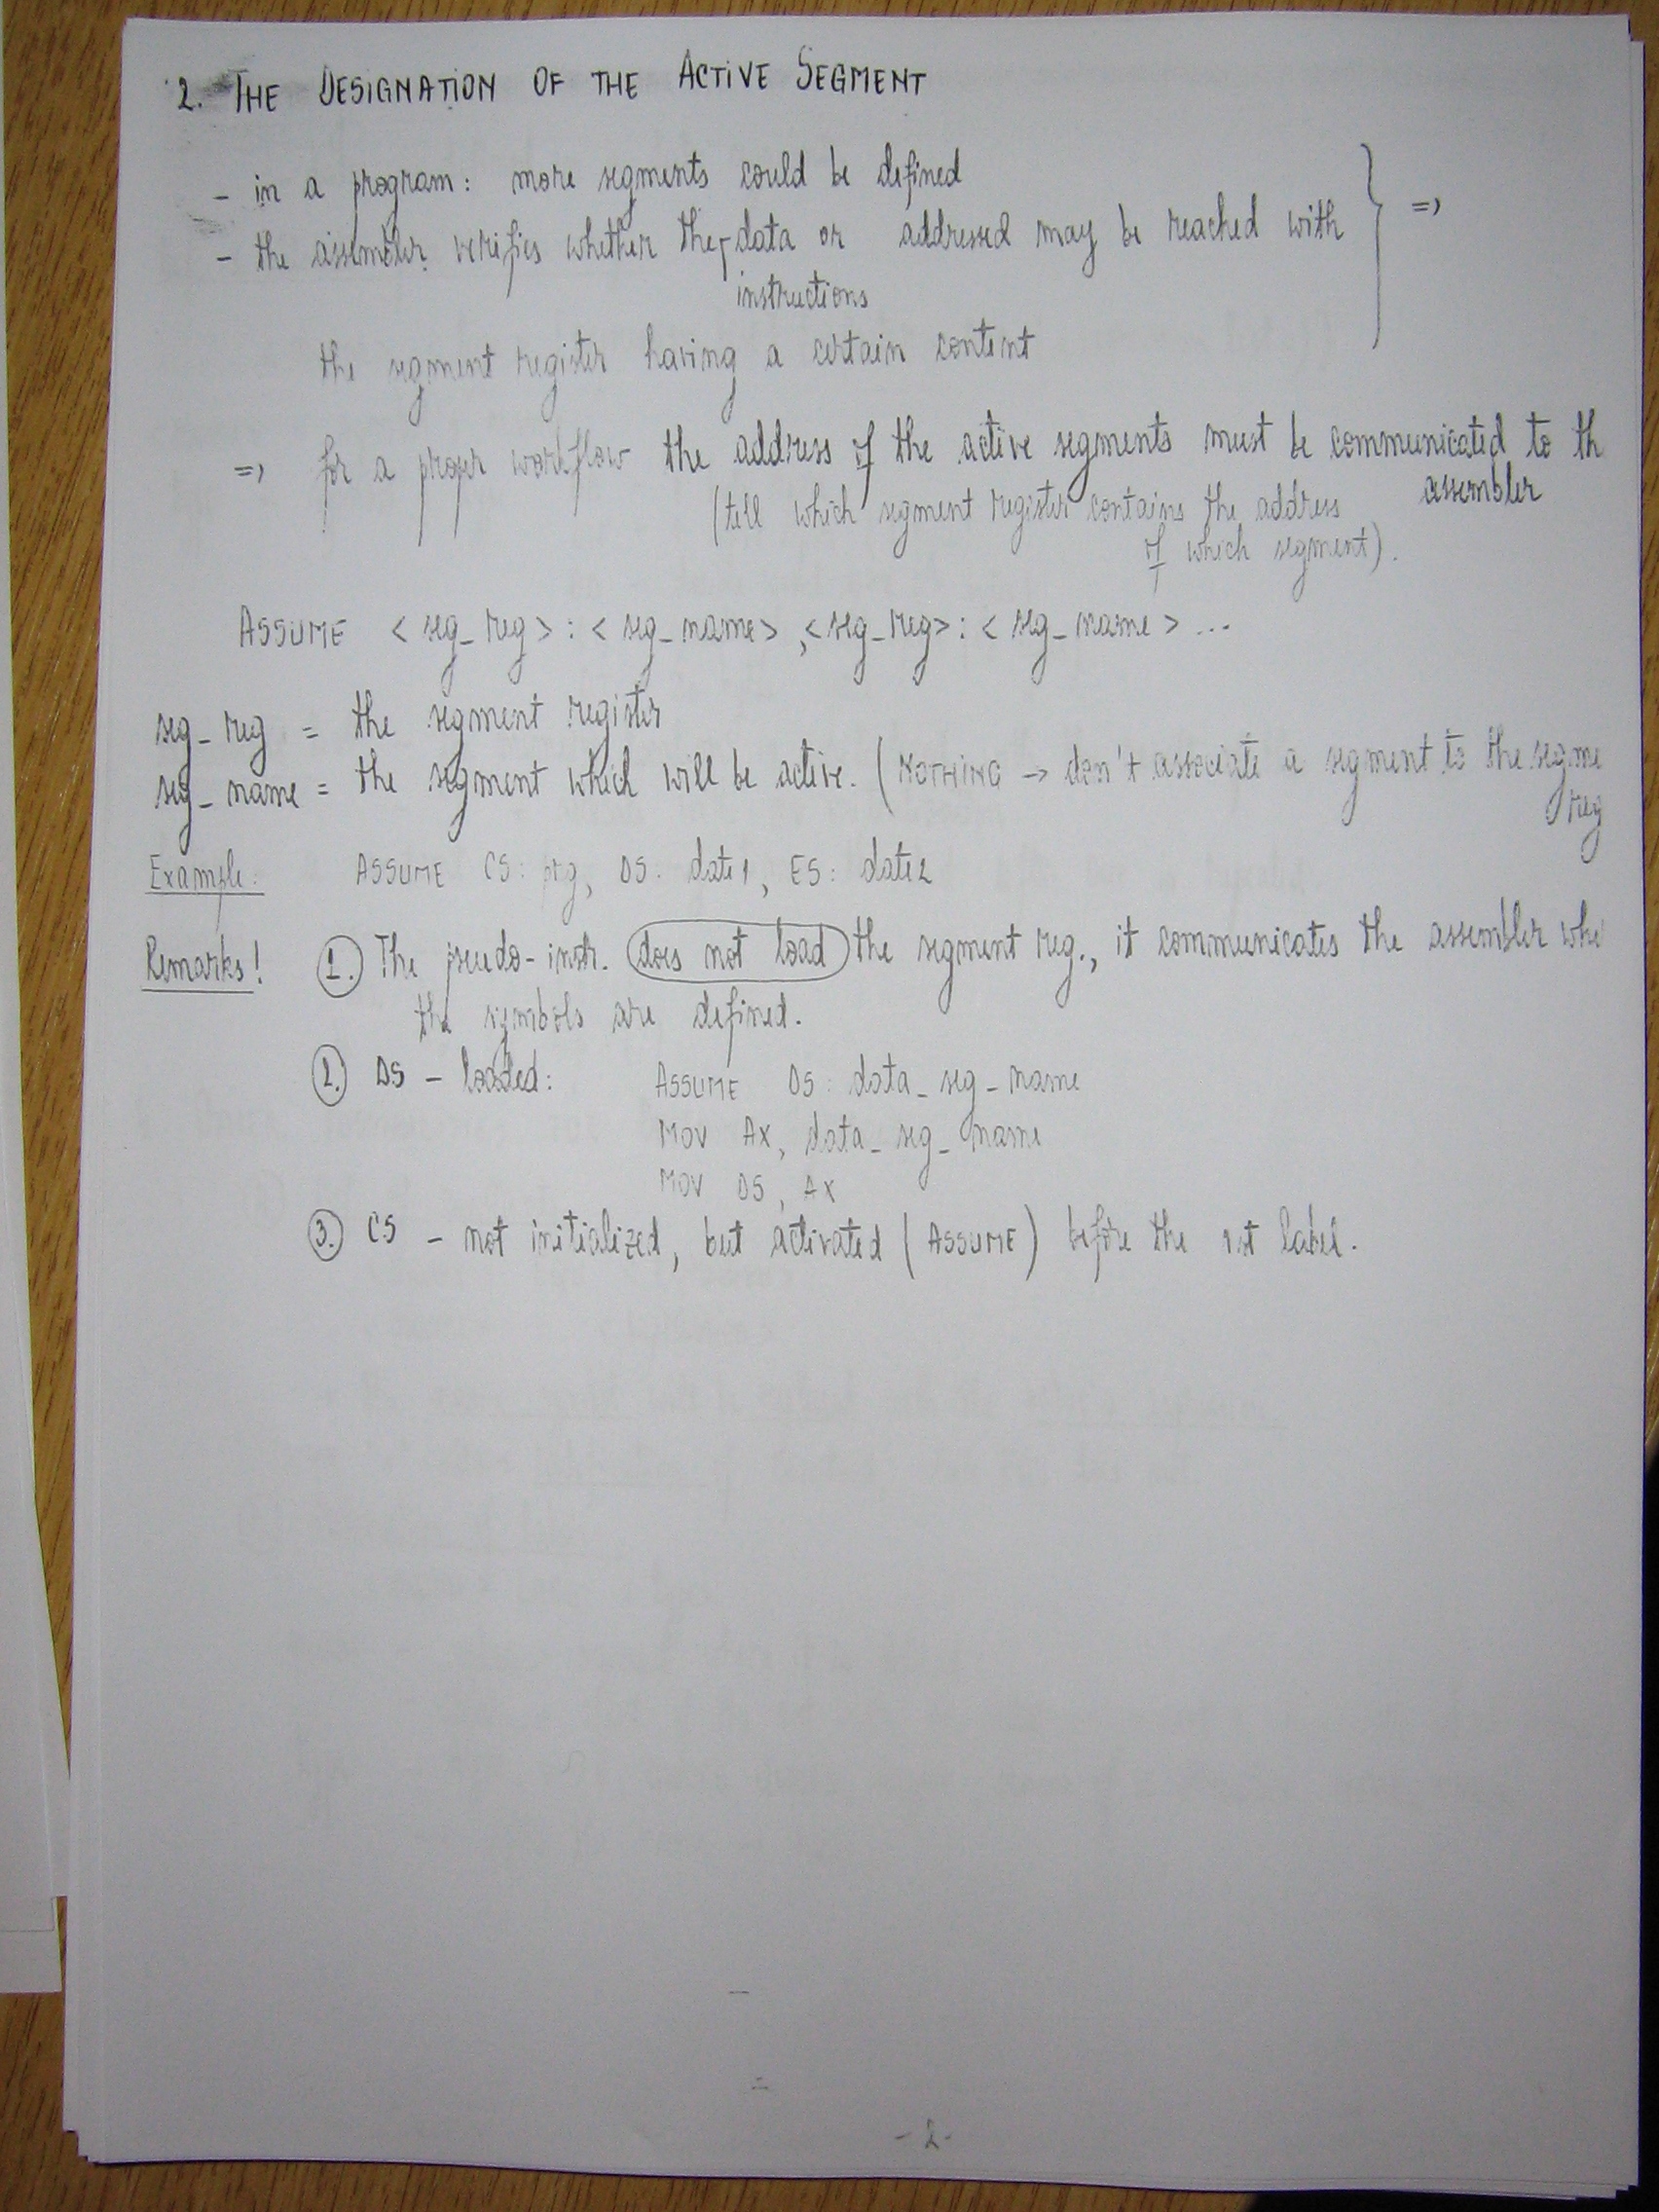 2. THE DESIGNATION OF THE ACTIVE SEGMENT
- in a program: more segments could be defined
- the assembler verifies whether the data or addressed may be reached with } =>
instructions
the segment register having a certain content
=> for a proper workflow the address of the active segments must be communicated to th
assembler
(tell which segment register contains the address
of which segment).
ASSUME <seg_reg>:<seg_name>,<seg_reg>:<seg_name>...
seg_reg = the segment register
seg_name = the segment which will be active. (NOTHING -> don't associate a segment to the segme
reg
Example: ASSUME CS: prg, DS: date1, ES: date2
Remarks! 1. The pseudo-instr. does not load the segment reg., it communicates the assembler whe
the symbols are defined.
2. DS - loaded: ASSUME DS: data_seg_name
MOV AX, data_seg_name
MOV DS, AX
3. CS - not initialized, but activated (ASSUME) before the 1st label.
- 2 -